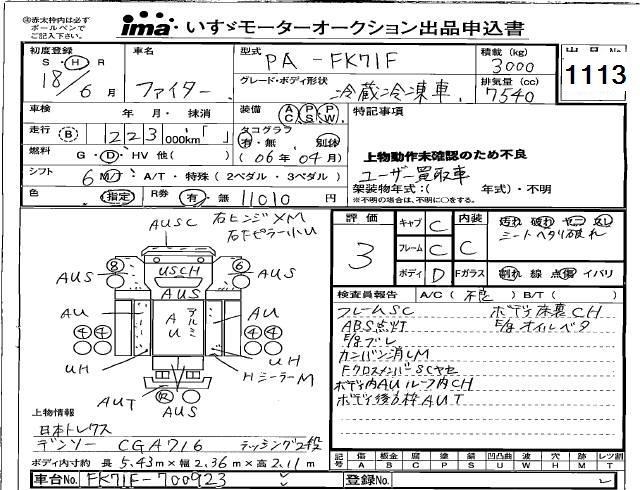 ㊟赤太枠内は必ず
ボールペンで
ご記入下さい。
ima いすゞモーターオークション出品申込書
初度登録 S・H・R 18/6月
車名 ファイター
型式 PA-FK71F
積載(kg) 3000
出品No. 1113
グレード・ボディ形状 冷蔵冷凍車
排気量(cc) 7540
車検 年 月・抹消
装備 AC PS PW
特記事項
走行 B 223,000km「 」
タコグラフ 有・無 別体
(06年04月)
燃料 G・D・HV 他( )
上物動作未確認のため不良
ユーザー買取車
シフト 6 M/T・A/T・特殊(2ペダル・3ペダル)
架装物年式:( 年式)・不明
※不明の場合は、不明に○をする。
色 指定 R券 有・無 11010円
評価 3
キャブ C 内装 C
フレーム C
ボディ D Fガラス
汚れ 破れ ヤニ 臭し
シートヘタリ破れ
割れ 線 点傷 イバリ
AUSC
右ヒンジXM
右Fピラー小U
8 6
AUS USCH AUS
AUS
AU アルミ AU AU
4 4 4 4
UH UH
HシーラーM
AUT R AUS
検査員報告 A/C(不良) B/T( )
フレームSC ボデー床裏CH
ABS点灯 E/gオイルベタ
E/gブレ
カンバン消しM
FクロスメンバーSCヤセ
ボデー内AUルーフ内CH
ボデー後方枠AUT
上物情報
日本トレクス
デンソー CGA716 ラッシング2段
ボディ内寸約 長5.43m×幅2.36m×高2.11m
記号 傷 A 板金 B 腐 C 塗 P 錆 S 凹凸曲 U 波 W 穴 H 跡 M レツ割 T
車台No. FK71F-700923
登録No.